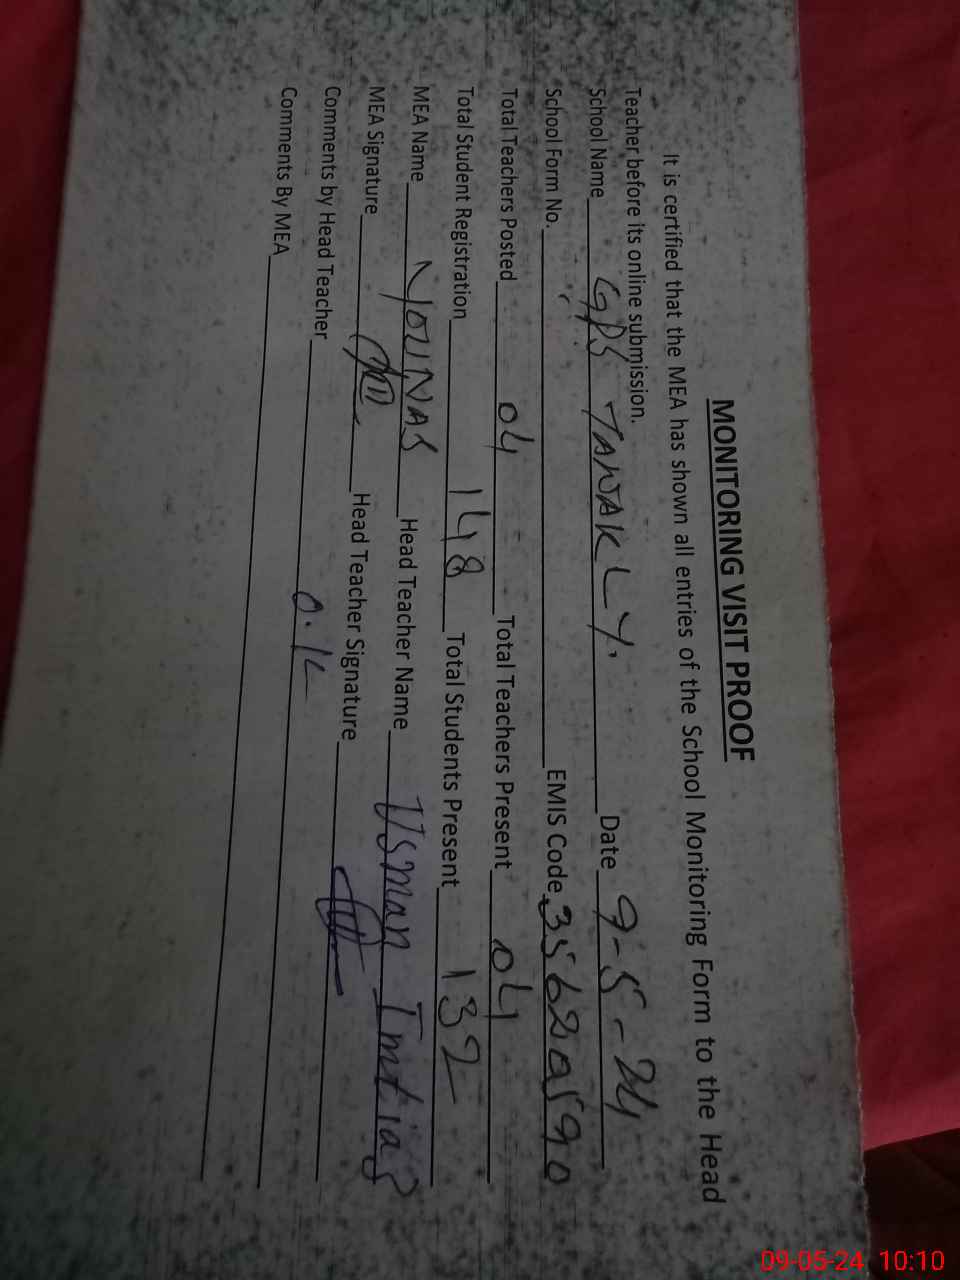 MONITORING VISIT PROOF
It is certified that the MEA has shown all entries of the School Monitoring Form to the Head
Teacher before its online submission.
School Name GPS TAWAKLY. Date 9-5-24
School Form No. EMIS Code 35620590
Total Teachers Posted 04 Total Teachers Present 04
Total Student Registration 148 Total Students Present 132
MEA Name YOUNAS Head Teacher Name Usman Imtiaz
MEA Signature Head Teacher Signature
Comments by Head Teacher O.K
Comments By MEA
09-05-24 10:10